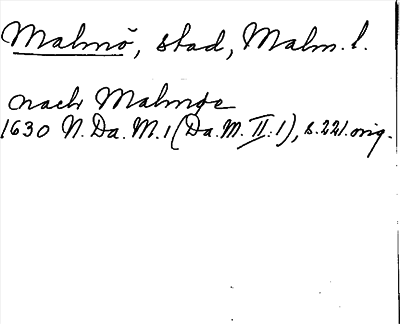 Malmö, stad, Malm. l.
nach Malmøe
1630 N. Da. M. 1 (Da. M. II: 1), s. 221. orig.